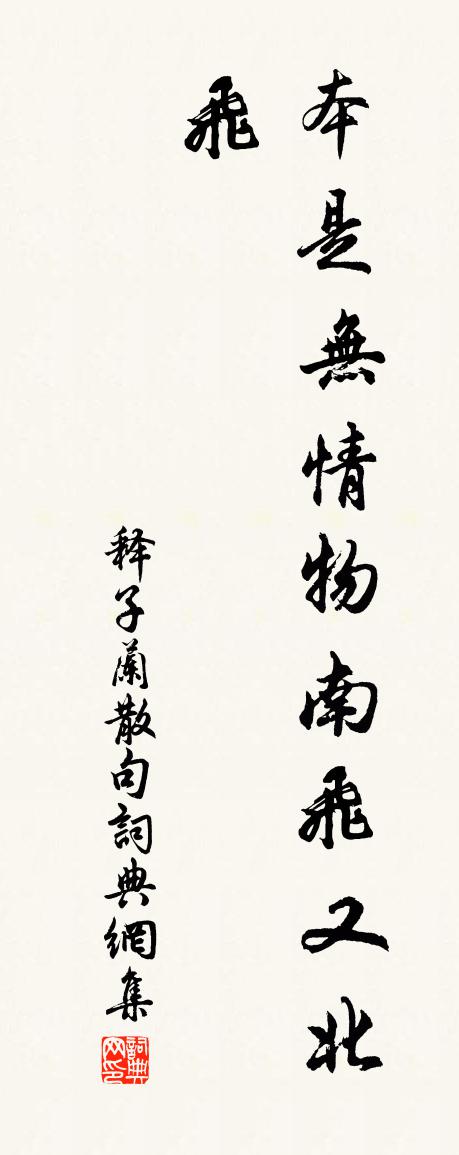 本是無情物南飛又北
飛
释子蘭散句詞典網集
詞典
网印